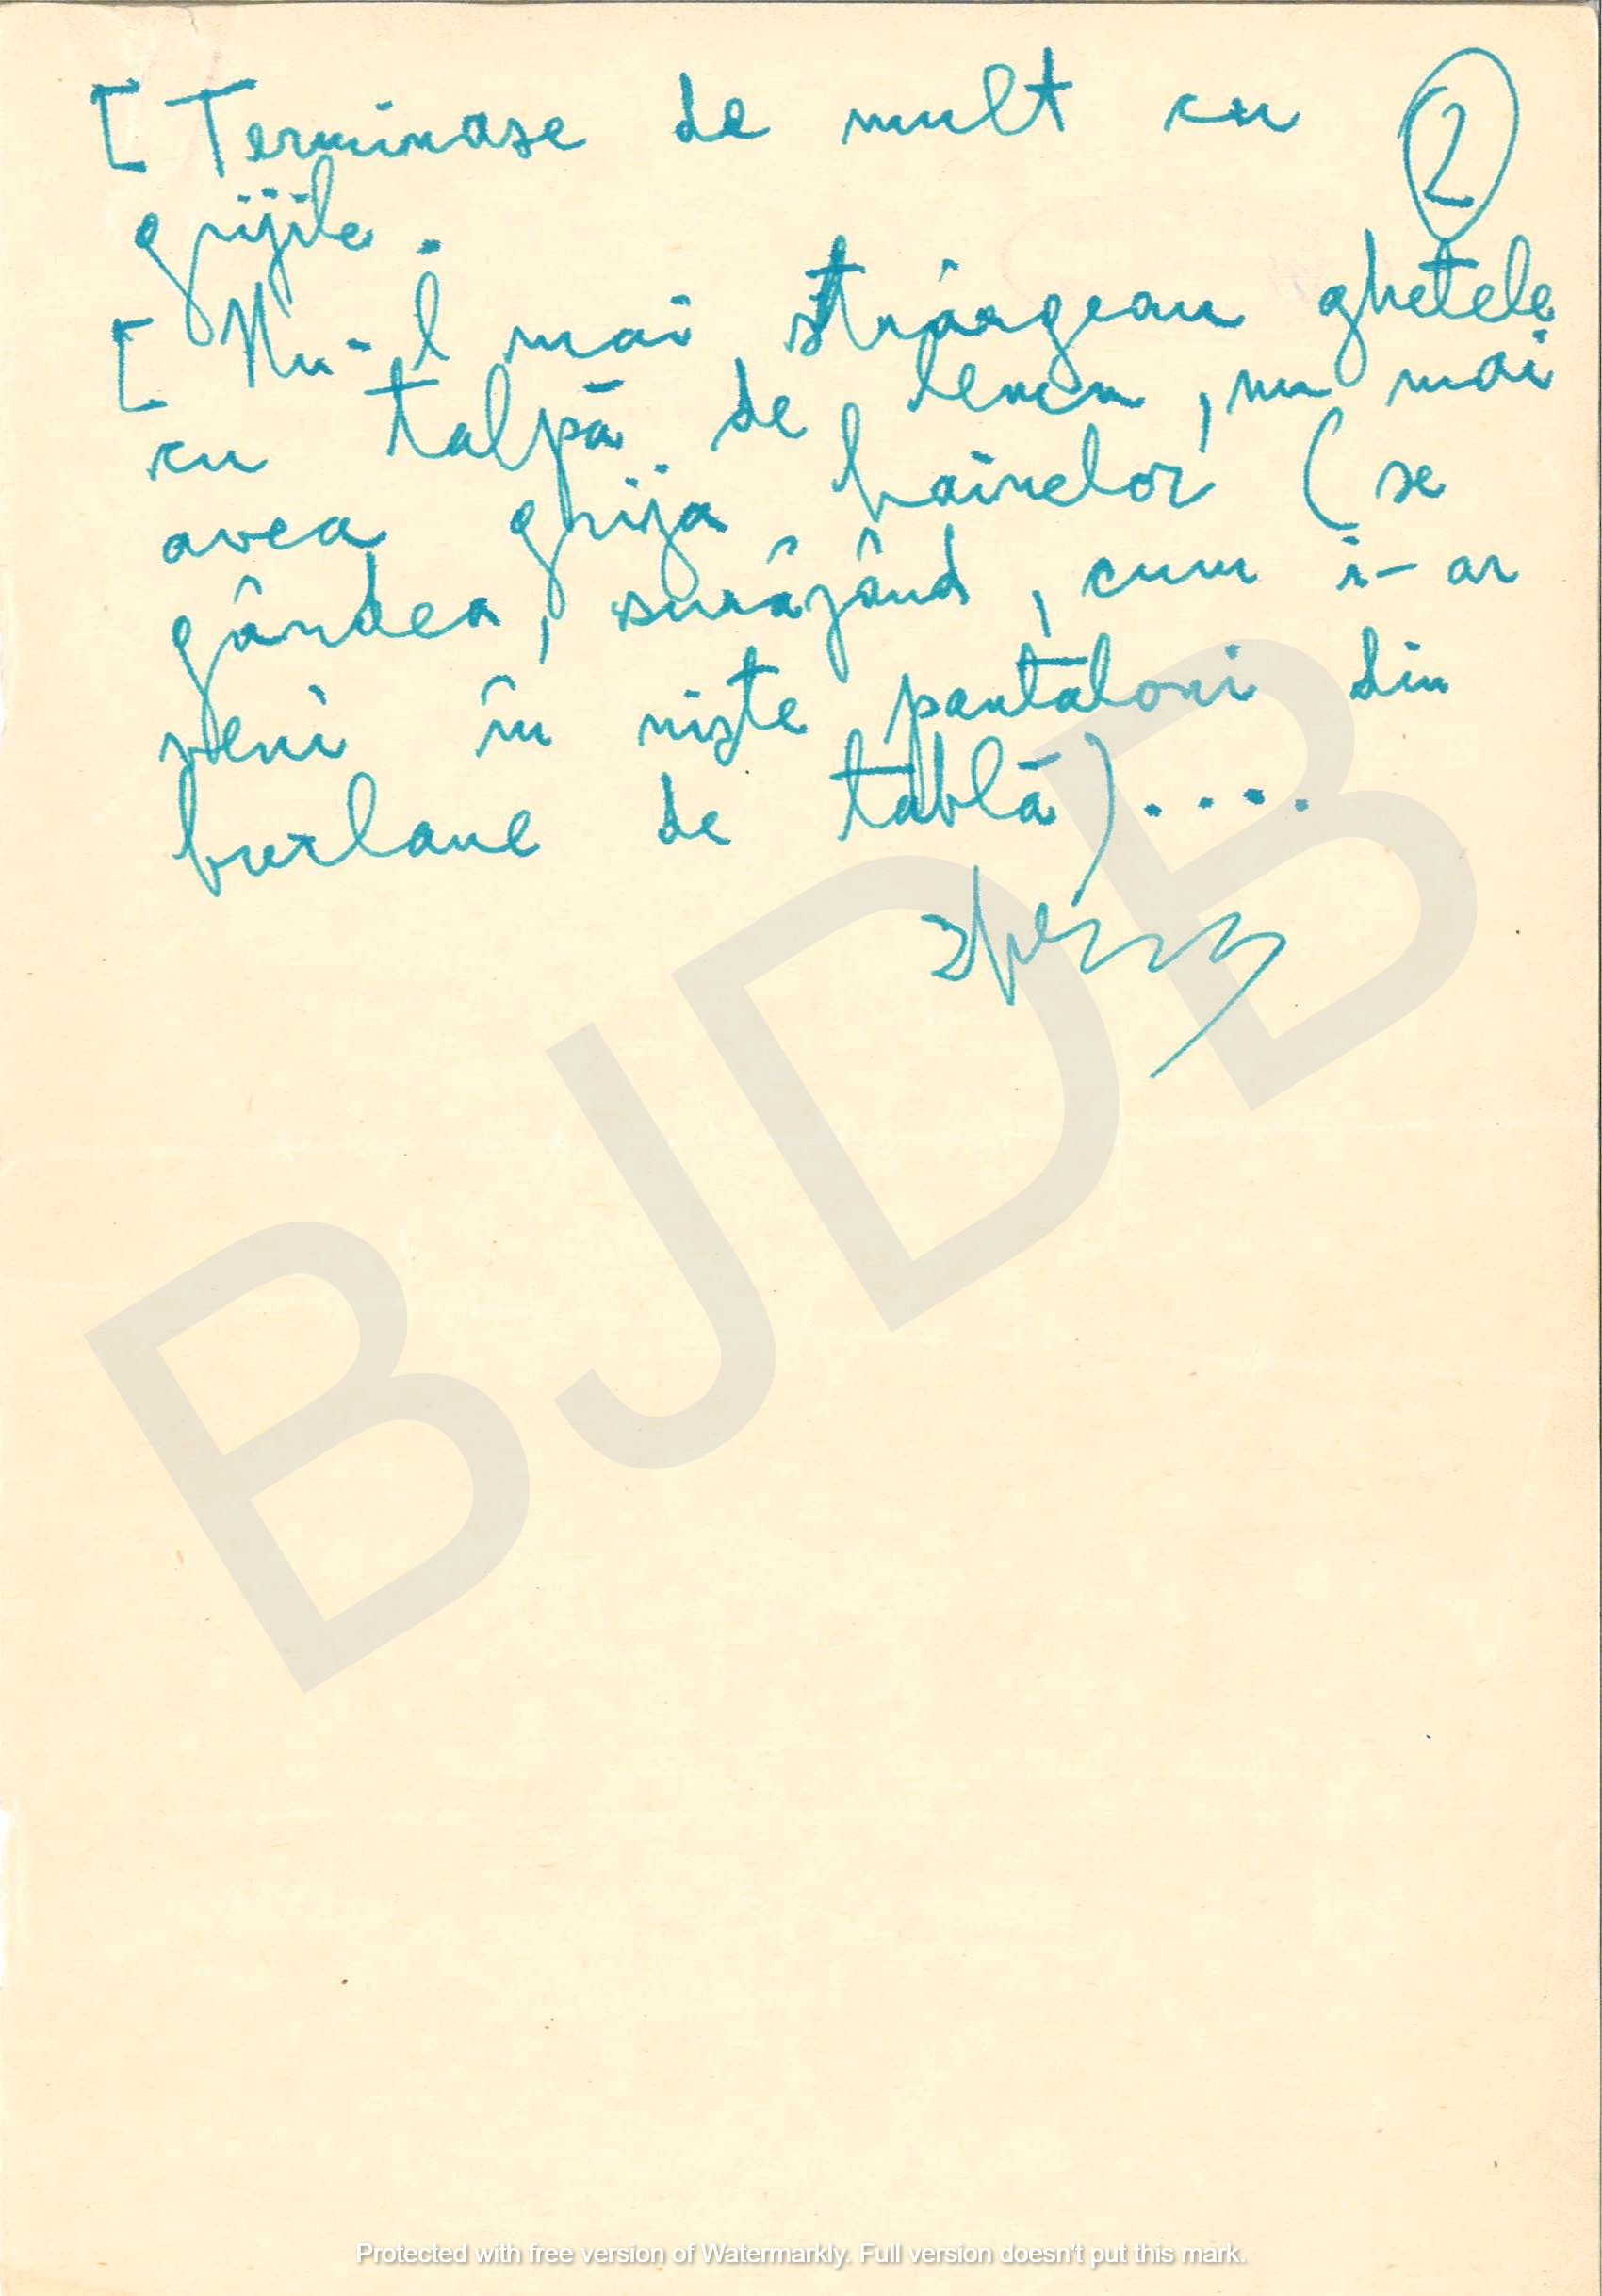 [ Terminase de mult cu ②
grijile.
[ Nu-l mai strângeau ghetele
cu talpă de lemn, nu mai
avea grija hainelor (se
gândea, surâzând, cum i-ar
veni în niște pantaloni din
burlane de tablă)....
BJDB
Protected with free version of Watermarkly. Full version doesn't put this mark.